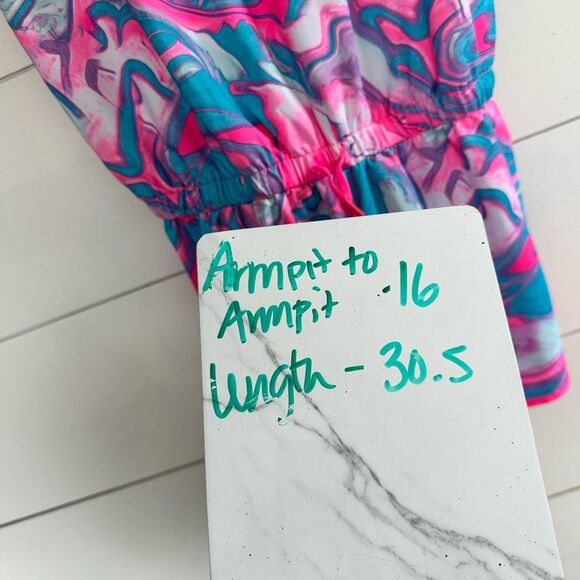 Armpit to
Armpit - 16
Length - 30.5